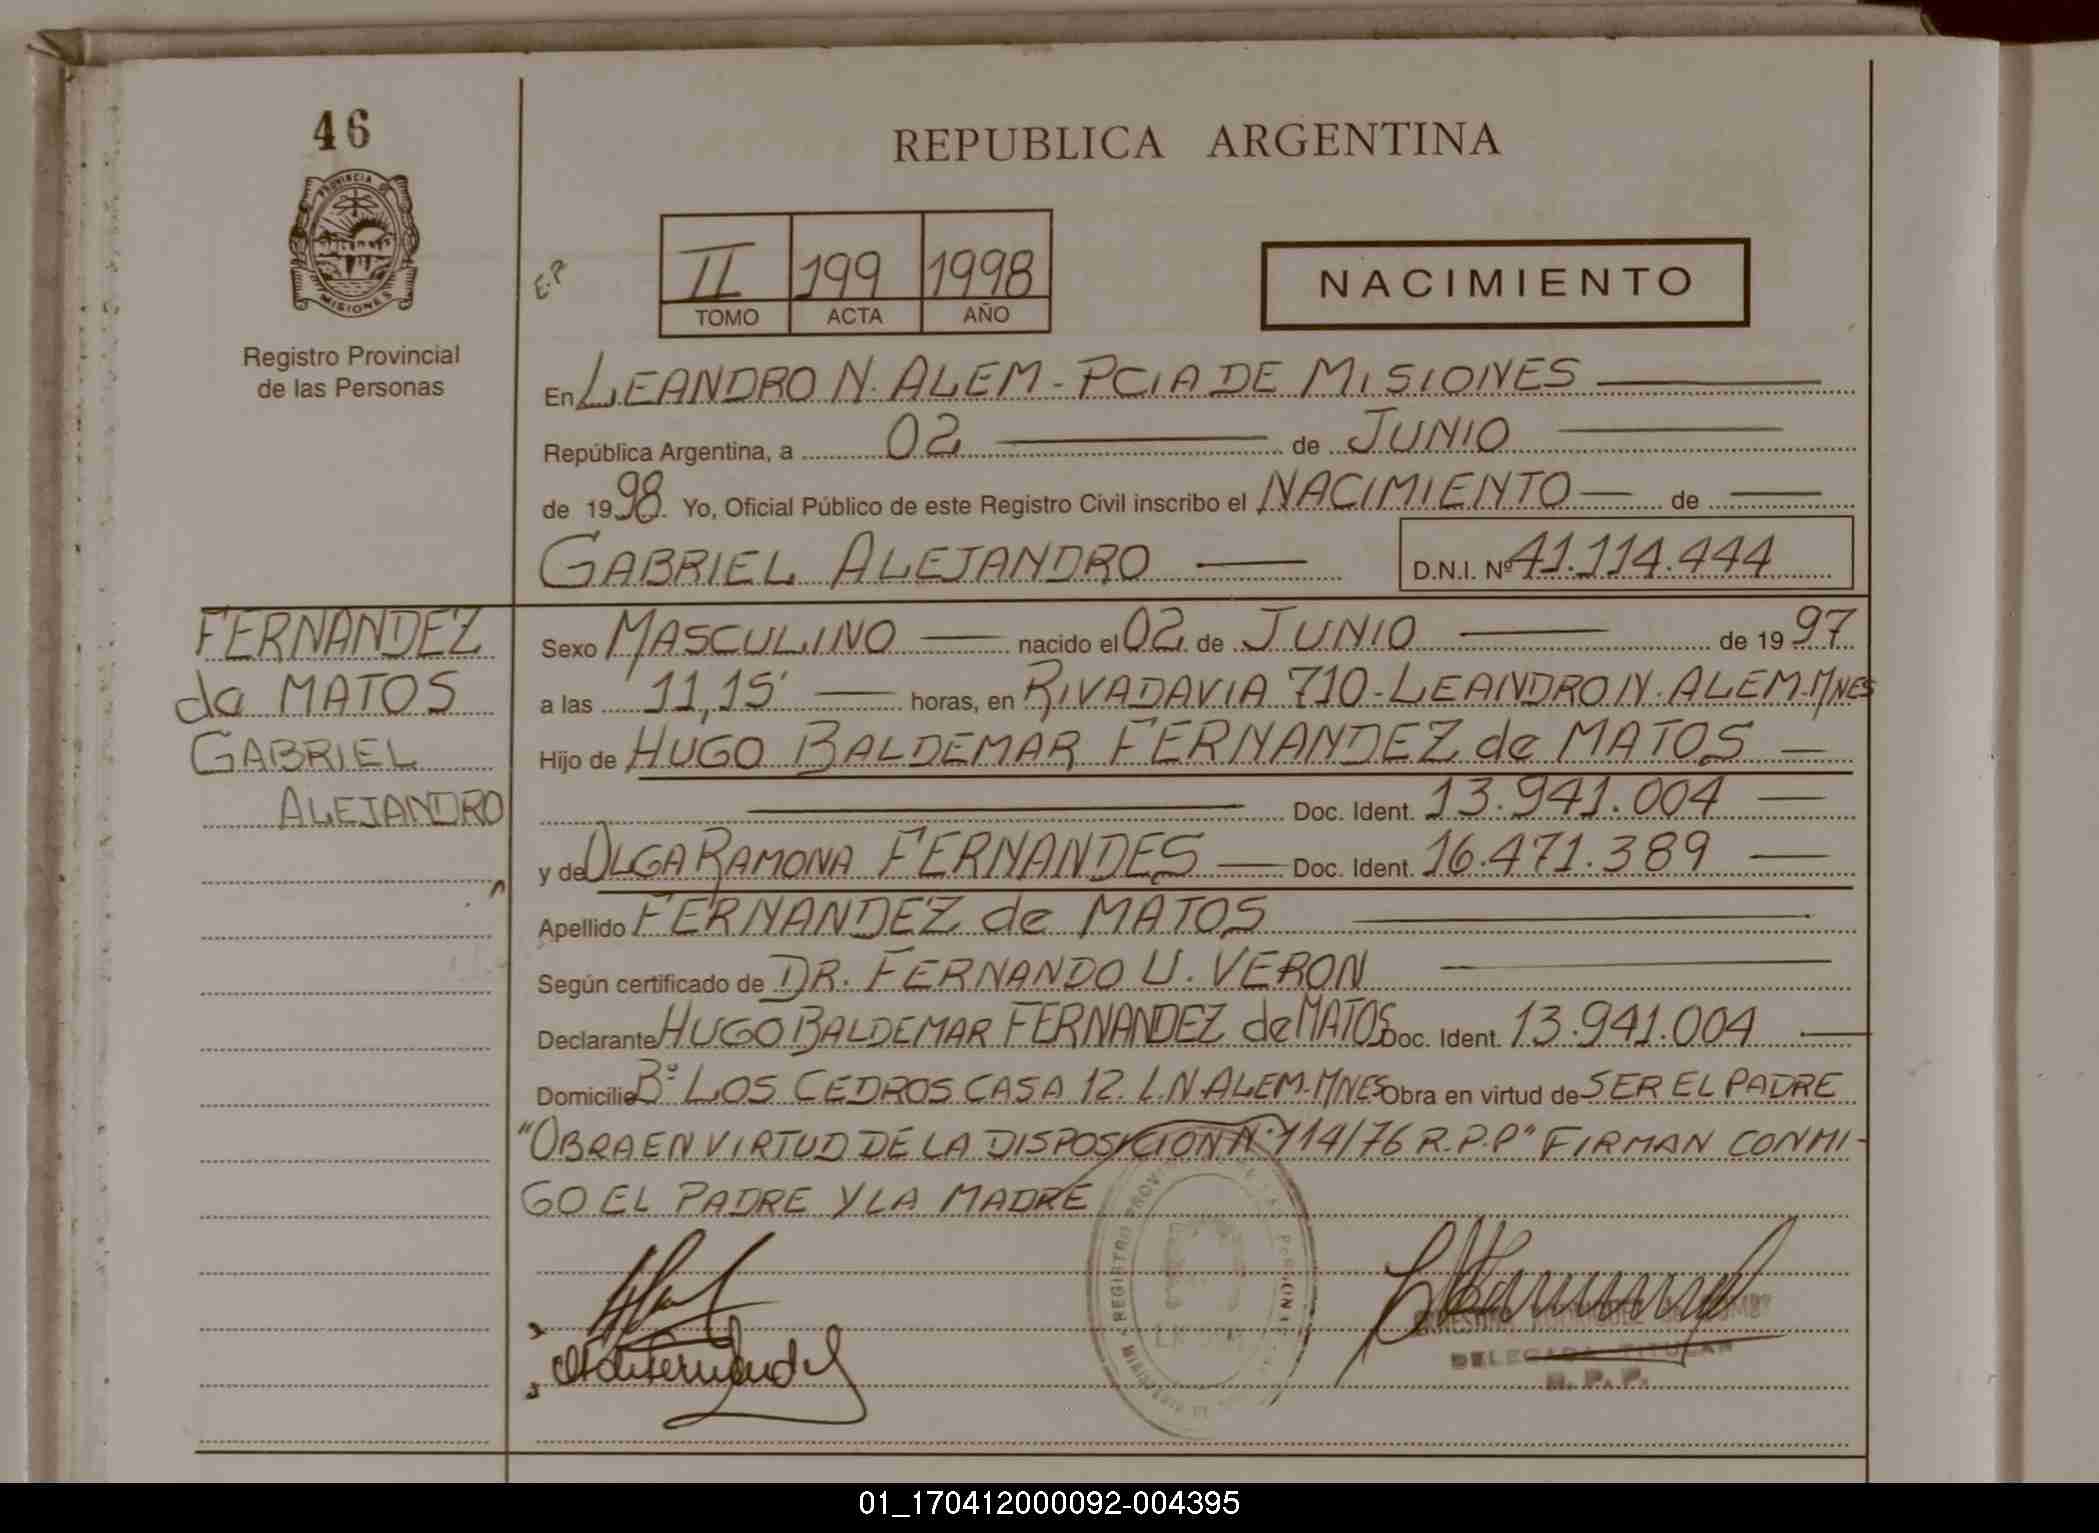 46
PROVINCIA DE
MISIONES
Registro Provincial
de las Personas
REPUBLICA ARGENTINA
E.P
II 199 1998
TOMO ACTA AÑO
NACIMIENTO
En LEANDRO N. ALEM - PCIA DE MISIONES
República Argentina, a 02 de JUNIO
de 1998. Yo, Oficial Público de este Registro Civil inscribo el NACIMIENTO de
GABRIEL ALEJANDRO
D.N.I. Nº 41.114.444
FERNANDEZ
de MATOS
GABRIEL
ALEJANDRO
Sexo MASCULINO nacido el 02 de JUNIO de 1997
a las 11,15' horas, en RIVADAVIA 710 - LEANDRO N. ALEM - MNES
Hijo de HUGO BALDEMAR FERNANDEZ de MATOS
Doc. Ident. 13.941.004
y de OLGA RAMONA FERNANDES Doc. Ident. 16.471.389
Apellido FERNANDEZ de MATOS
Según certificado de DR. FERNANDO U. VERON
Declarante HUGO BALDEMAR FERNANDEZ de MATOS Doc. Ident. 13.941.004
Domicilio Bº LOS CEDROS CASA 12. L.N ALEM-MNES Obra en virtud de SER EL PADRE
"OBRA EN VIRTUD DE LA DISPOSICION Nº 114/76 R.P.P" FIRMAN CONMI-
GO EL PADRE Y LA MADRE
REGISTRO
DELEGADA TITULAR
R. P. P.
01_170412000092-004395